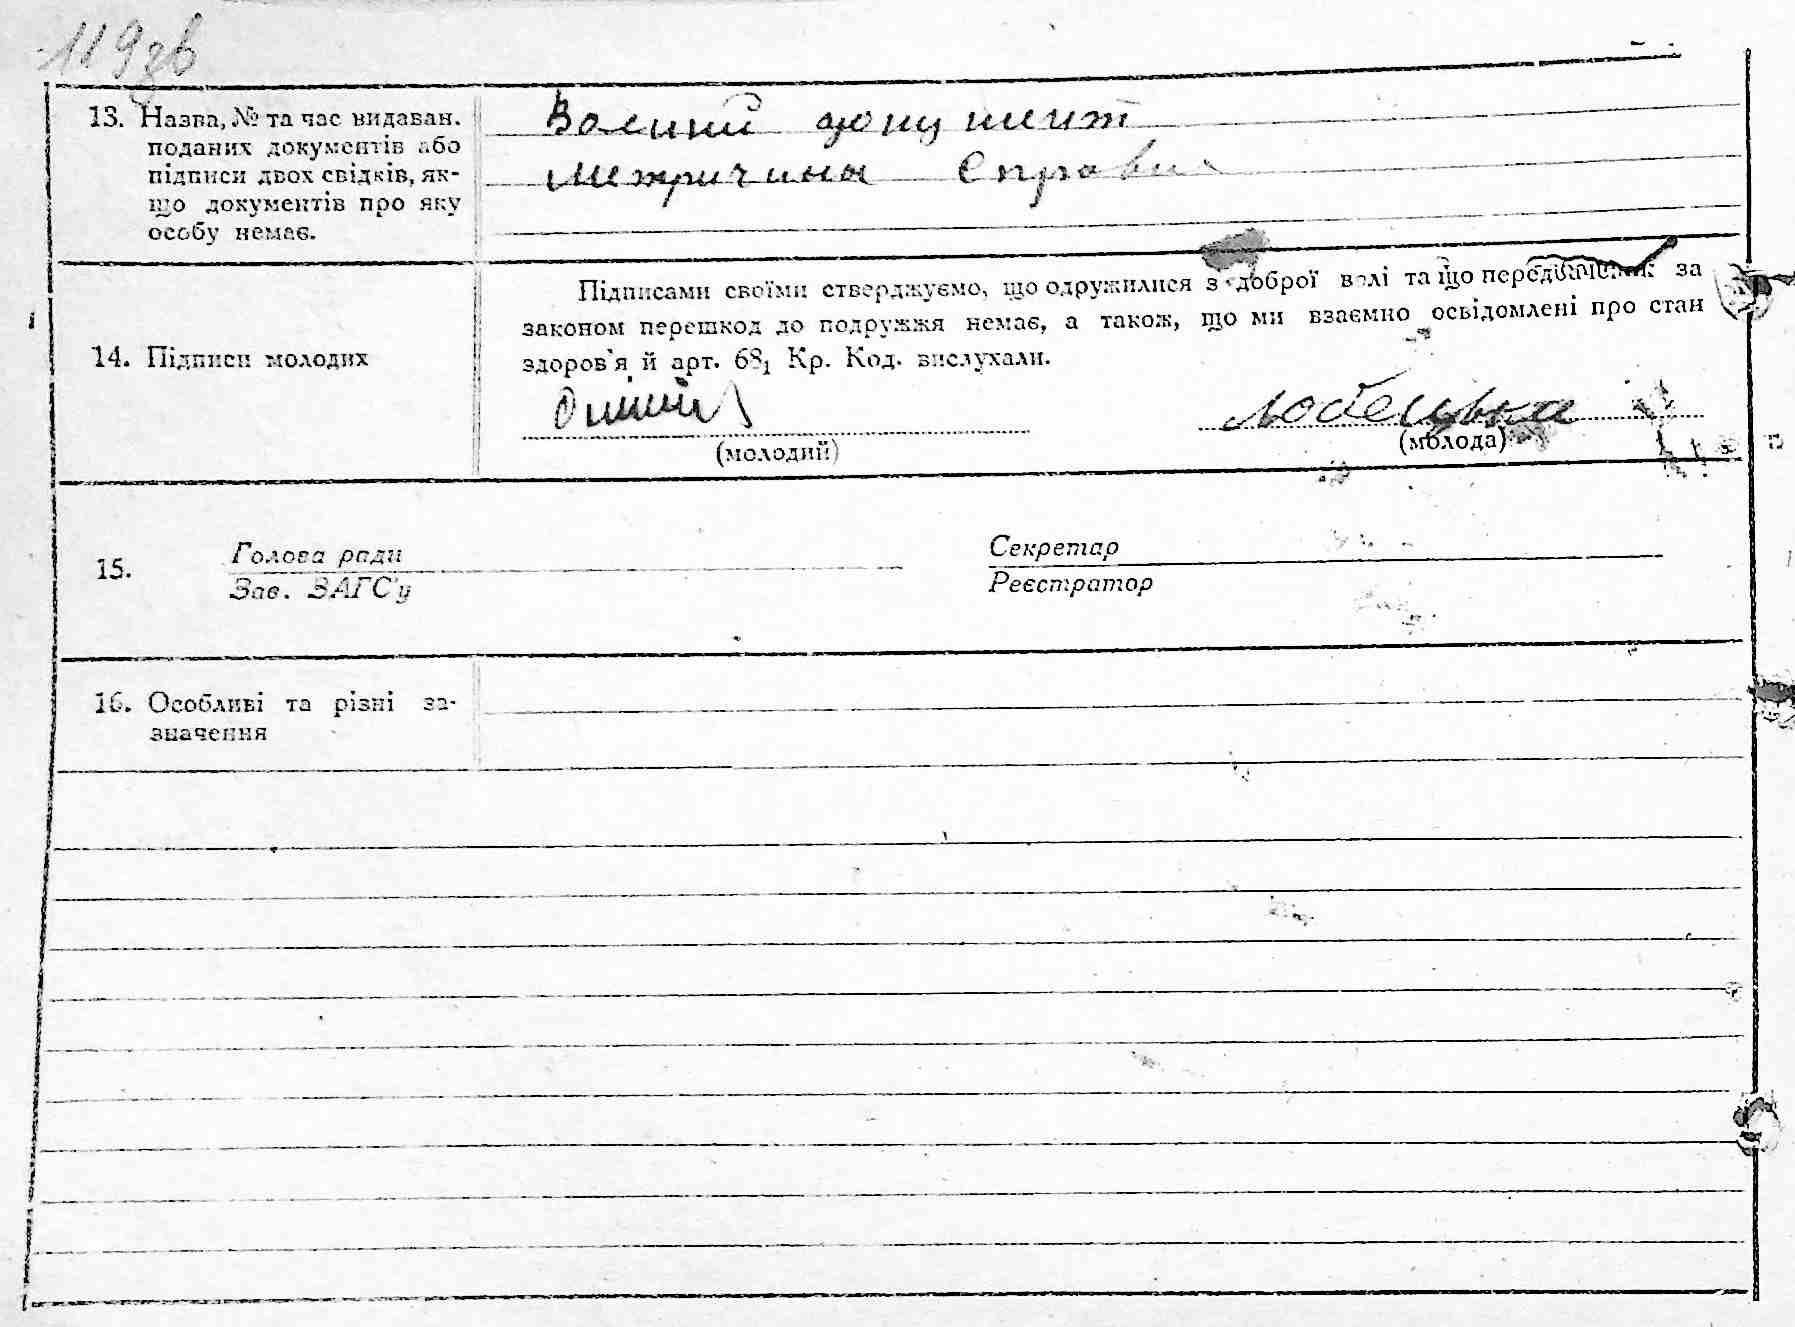 119зв
13. Назва, № та час видаван.
поданих документів або
підписи двох свідків, як-
що документів про яку
особу немає.
документ
Метричина Справка
14. Підписи молодих
Підписами своїми стверджуємо, що одружилися з доброї волі та що за
законом перешкод до подружжя немає, а також, що ми взаємно освідомлені про стан
здоров'я й арт. 68₁ Кр. Код. вислухали.
Любецька
(молодий)
(молода)
15.
Голова ради
Зав. ЗАГС'у
Секретар
Реєстратор
16. Особливі та різні за-
значення